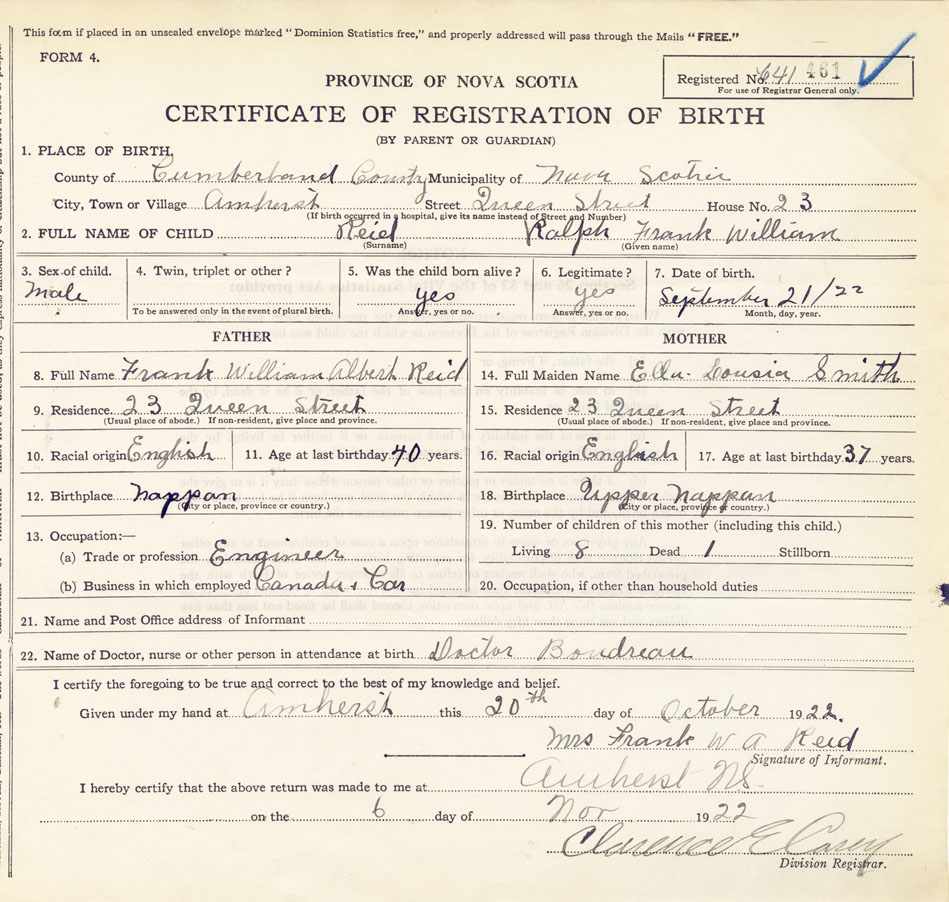 This form if placed in an unsealed envelope marked "Dominion Statistics free," and properly addressed will pass through the Mails "FREE."
FORM 4.
Registered No. 641 461
For use of Registrar General only.
PROVINCE OF NOVA SCOTIA
CERTIFICATE OF REGISTRATION OF BIRTH
(BY PARENT OR GUARDIAN)
1. PLACE OF BIRTH,
County of Cumberland County Municipality of Nova Scotia
City, Town or Village Amherst Street Queen Street House No. 23
(If birth occurred in a hospital, give its name instead of Street and Number)
2. FULL NAME OF CHILD Reid Ralph Frank William
(Surname) (Given name)
3. Sex of child. 4. Twin, triplet or other? 5. Was the child born alive? 6. Legitimate? 7. Date of birth.
Male yes yes September 21/22
To be answered only in the event of plural birth. Answer, yes or no. Answer, yes or no. Month, day, year.
FATHER MOTHER
8. Full Name Frank William Albert Reid 14. Full Maiden Name Ella Lousia Smith
9. Residence. 23 Queen Street 15. Residence 23 Queen Street
(Usual place of abode.) If non-resident, give place and province. (Usual place of abode.) If non-resident, give place and province.
10. Racial origin English 11. Age at last birthday 40 years. 16. Racial origin English 17. Age at last birthday 37 years.
12. Birthplace Nappan 18. Birthplace Upper Nappan
(City or place, province or country.) (City or place, province or country.)
13. Occupation:— 19. Number of children of this mother (including this child.)
(a) Trade or profession Engineer Living 8 Dead 1 Stillborn
(b) Business in which employed Canada Car 20. Occupation, if other than household duties
21. Name and Post Office address of Informant
22. Name of Doctor, nurse or other person in attendance at birth Doctor Boudreau
I certify the foregoing to be true and correct to the best of my knowledge and belief.
Given under my hand at Amherst this 20th day of October 1922.
Mrs Frank W A Reid
Signature of Informant.
I hereby certify that the above return was made to me at Amherst NS.
on the 6 day of Nov 1922
Clarence E Casey
Division Registrar.